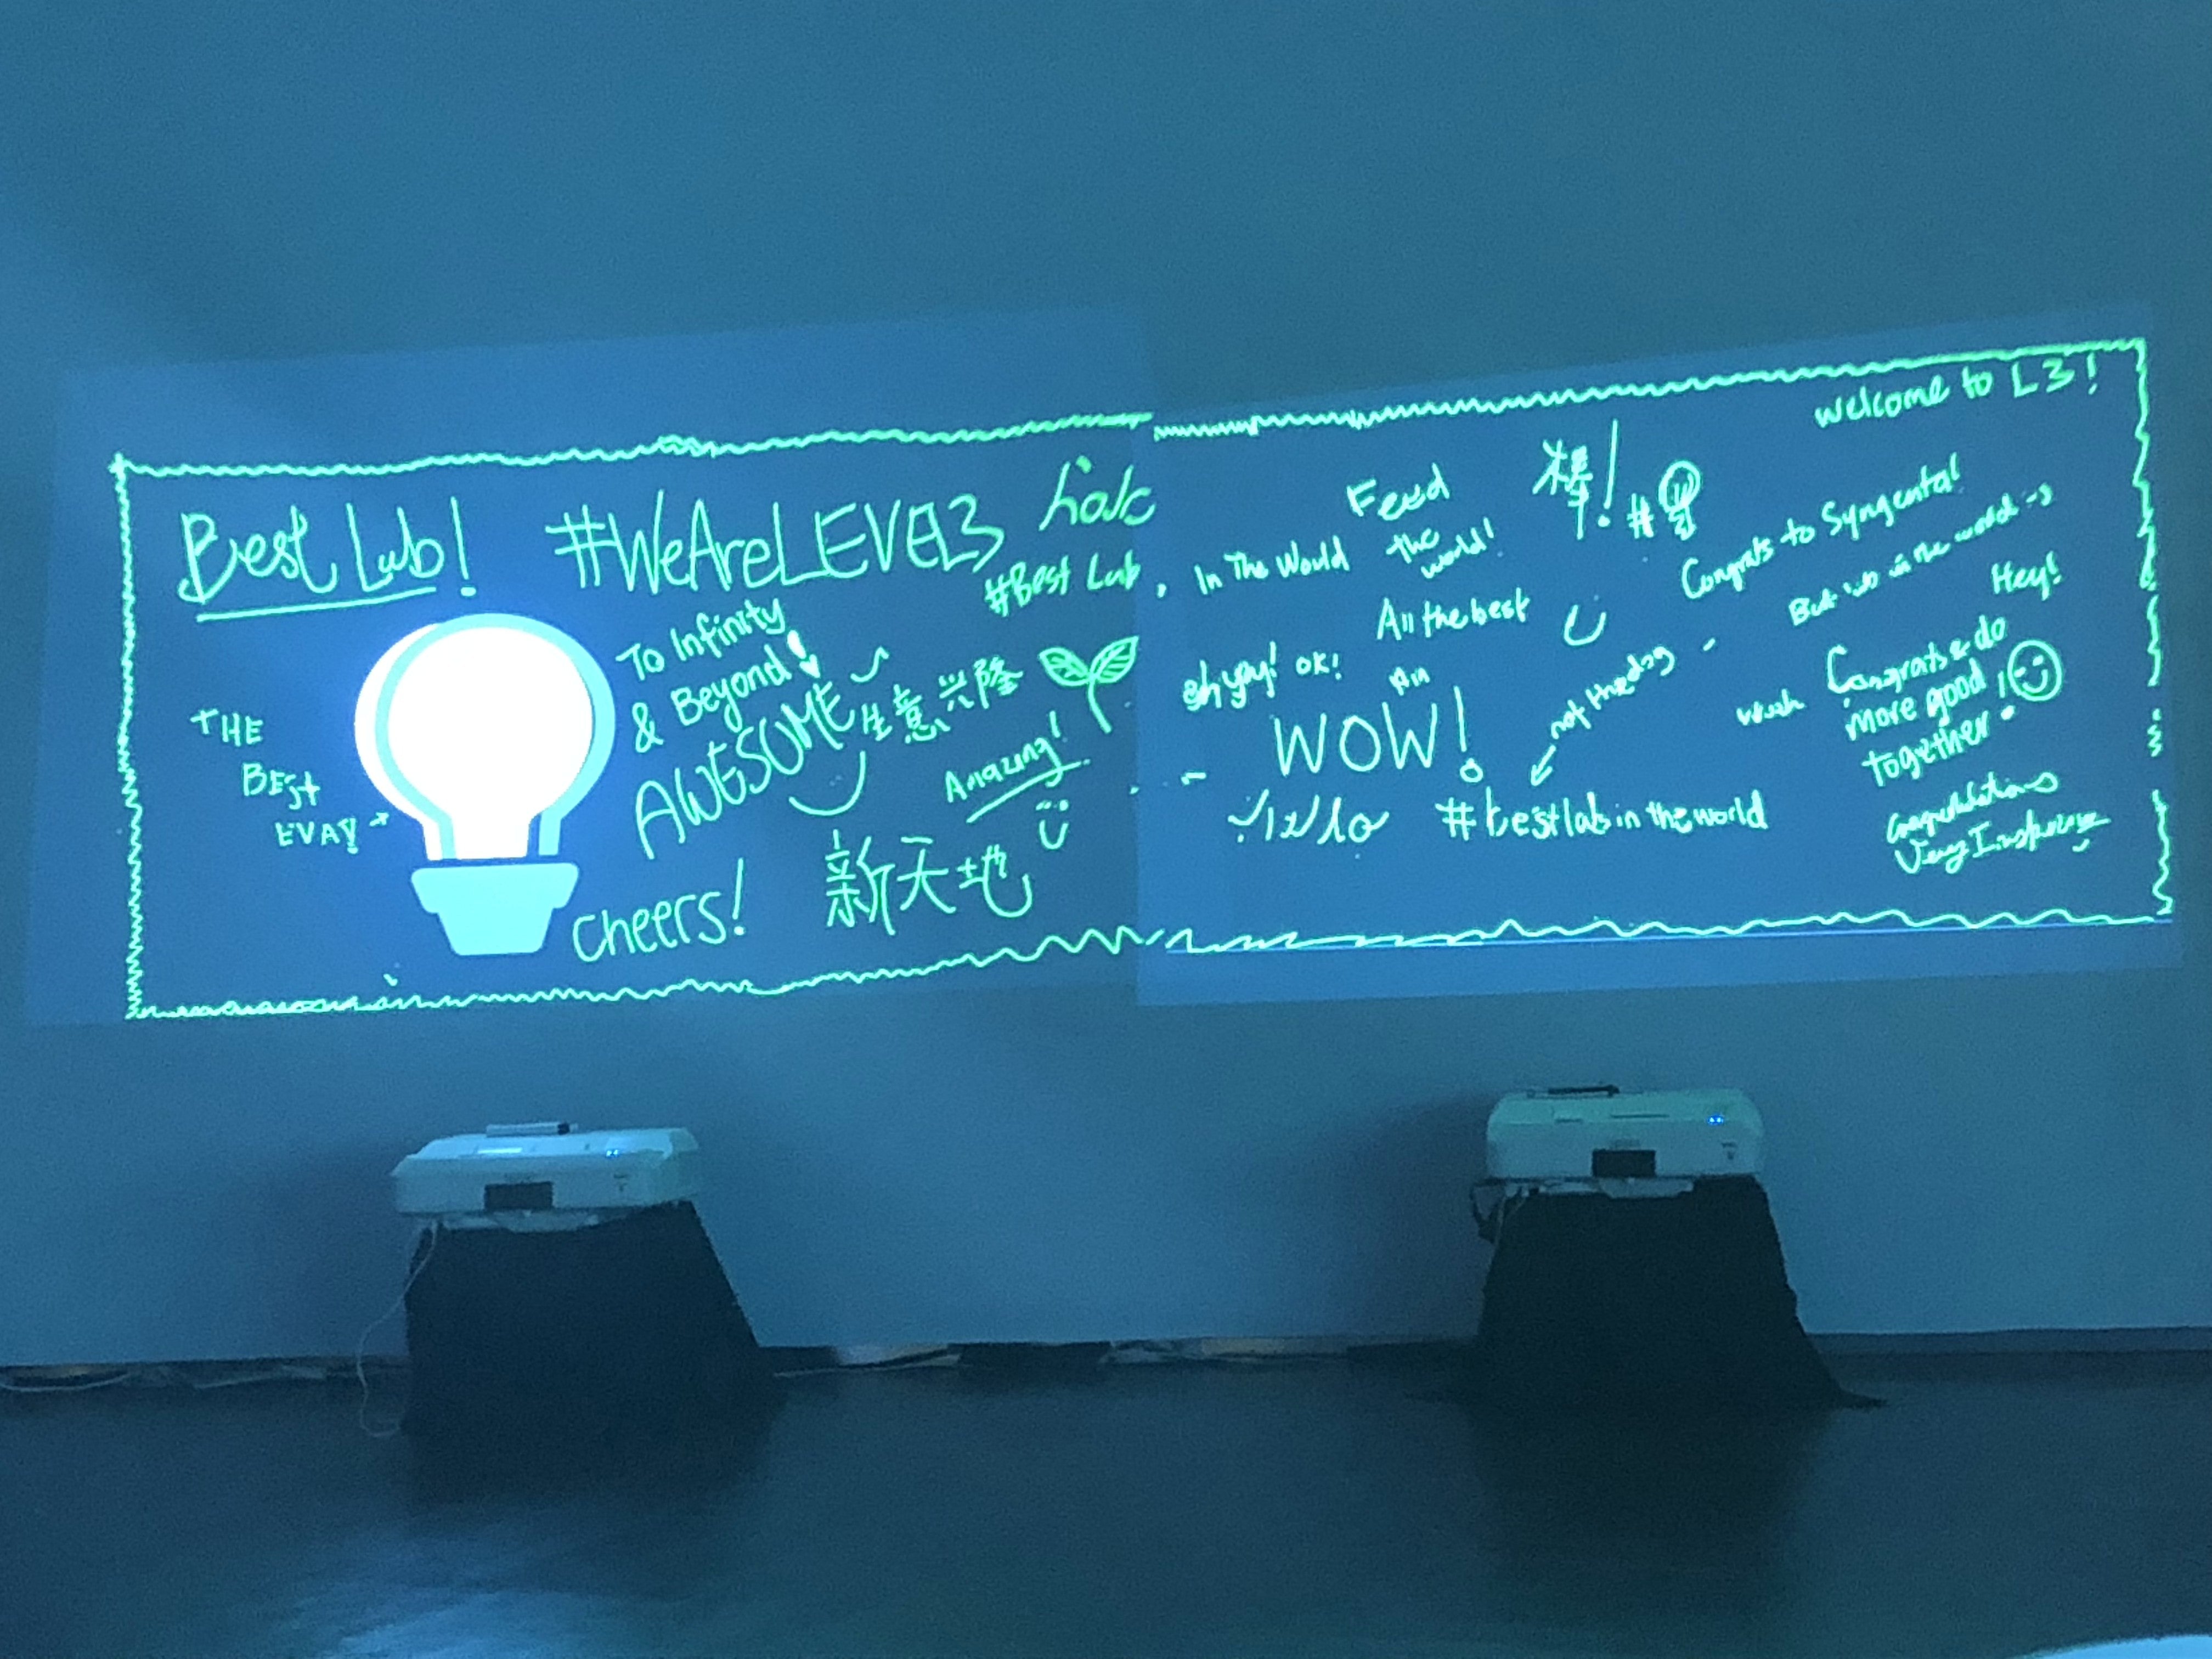 Best Lab!
#WeAreLEVEL3
#Best Lab, In The World
THE
BEST
EVA!
To Infinity
& Beyond!
AWESOME
生意兴隆
Amazing!
Cheers!
新天地
Feed
the
world!
棒!
#
welcome to L3!
Congrats to Syngenta!
in the world
All the best
Hey!
oh yay! OK!
WOW!
not the dog
#bestlab in the world
Congrats & do
more good
together!
Congratulations
Very Inspiring